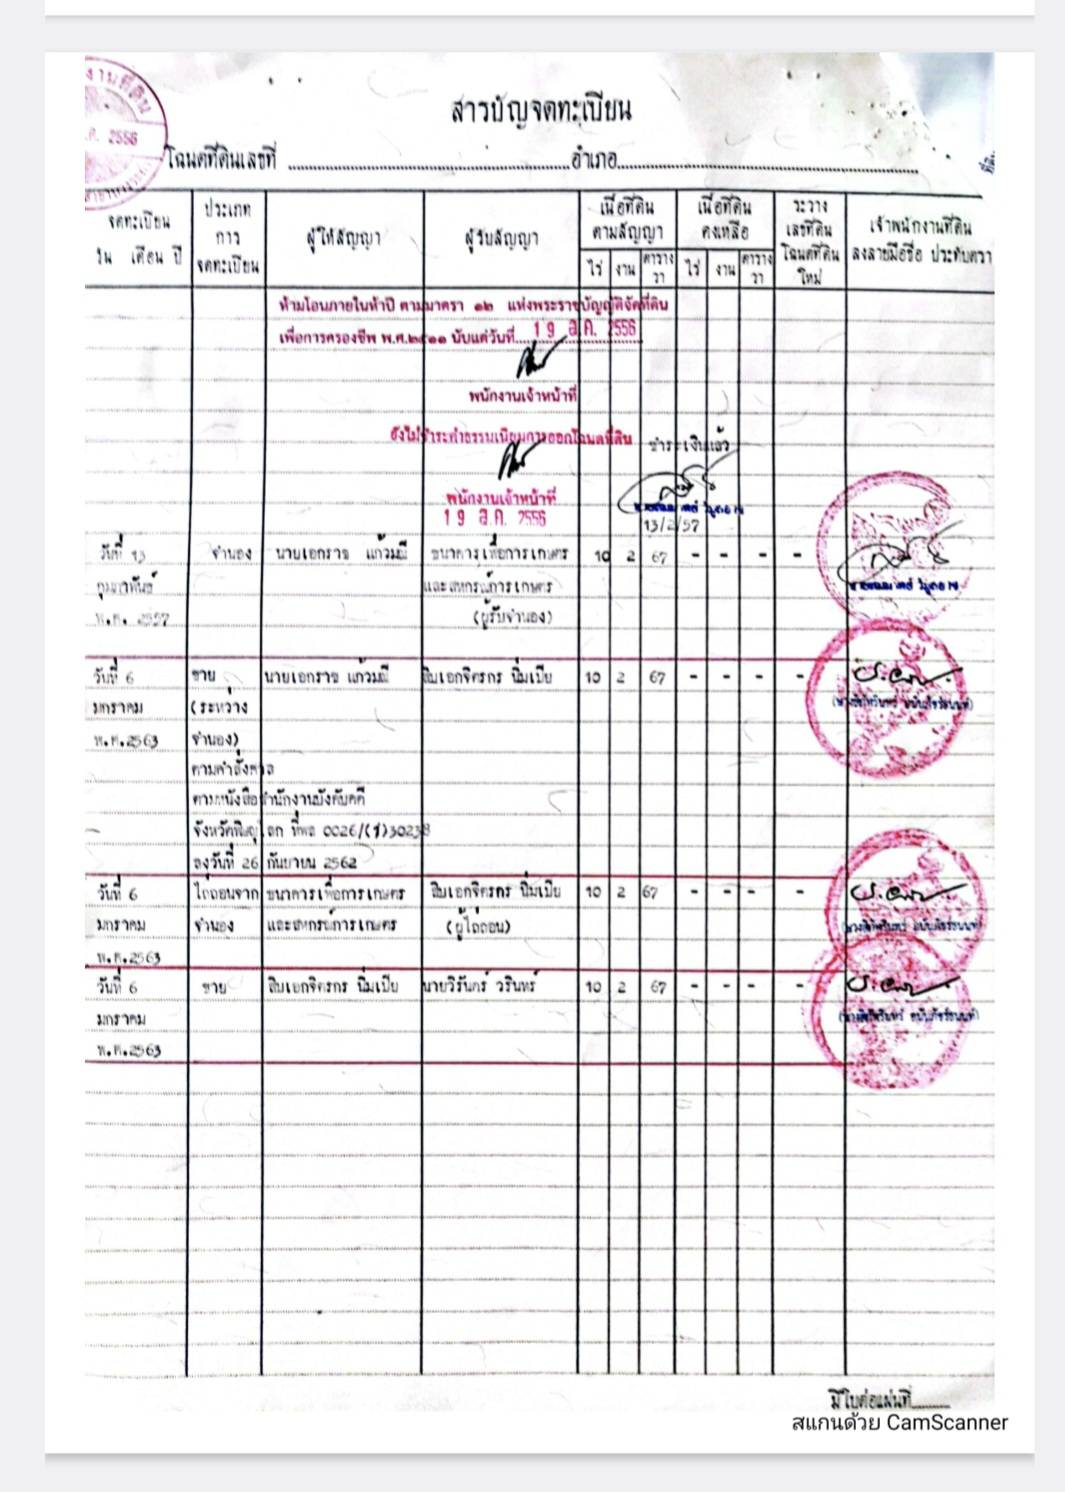 งานที่ดิน
ค. 2556
สารบัญจดทะเบียน
โฉนดที่ดินเลขที่ ........ อำเภอ........
จดทะเบียน วัน เดือน ปี
ประเภท การ จดทะเบียน
ผู้ให้สัญญา
ผู้รับสัญญา
เนื้อที่ดิน ตามสัญญา
ไร่ งาน ตาราง วา
เนื้อที่ดิน คงเหลือ
ไร่ งาน ตาราง วา
ระวาง เลขที่ดิน โฉนดที่ดิน ใหม่
เจ้าพนักงานที่ดิน ลงลายมือชื่อ ประทับตรา
ห้ามโอนภายในห้าปี ตามมาตรา ๑๒ แห่งพระราชบัญญัติจัดที่ดิน
เพื่อการครองชีพ พ.ศ.๒๕๑๑ นับแต่วันที่ 19 ส.ค. 2556
พนักงานเจ้าหน้าที่
ยังไม่ชำระค่าธรรมเนียมการออกโฉนดที่ดิน ชำระเงินแล้ว
พนักงานเจ้าหน้าที่
19 ส.ค. 2556
13/2/57
วันที่ 13 จำนอง นายเอกราช แก้วมณี ธนาคารเพื่อการเกษตร 10 2 67 - - - -
กุมภาพันธ์ และสหกรณ์การเกษตร
พ.ศ. 2557 (ผู้รับจำนอง)
วันที่ 6 ขาย นายเอกราช แก้วมณี สิบเอกจิรกร นิ่มเปีย 10 2 67 - - - -
มกราคม (ระหว่าง
พ.ศ.2563 จำนอง)
ตามคำสั่งศาล
ตามหนังสือสำนักงานบังคับคดี
จังหวัดพิษณุโลก ที่พล 0026/(1)30238
ลงวันที่ 26 กันยายน 2562
วันที่ 6 ไถ่ถอนจาก ธนาคารเพื่อการเกษตร สิบเอกจิรกร นิ่มเปีย 10 2 67 - - - -
มกราคม จำนอง และสหกรณ์การเกษตร (ผู้ไถ่ถอน)
พ.ศ.2563
วันที่ 6 ขาย สิบเอกจิรกร นิ่มเปีย นายวิรันกร์ วรินทร์ 10 2 67 - - - -
มกราคม
พ.ศ.2563
มีใบต่อแผ่นที่........
สแกนด้วย CamScanner